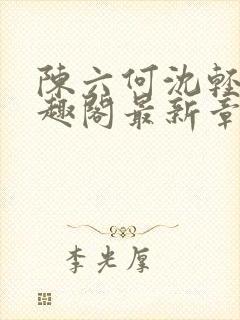 陳六何沈輕
趣閣最新章
李光厚